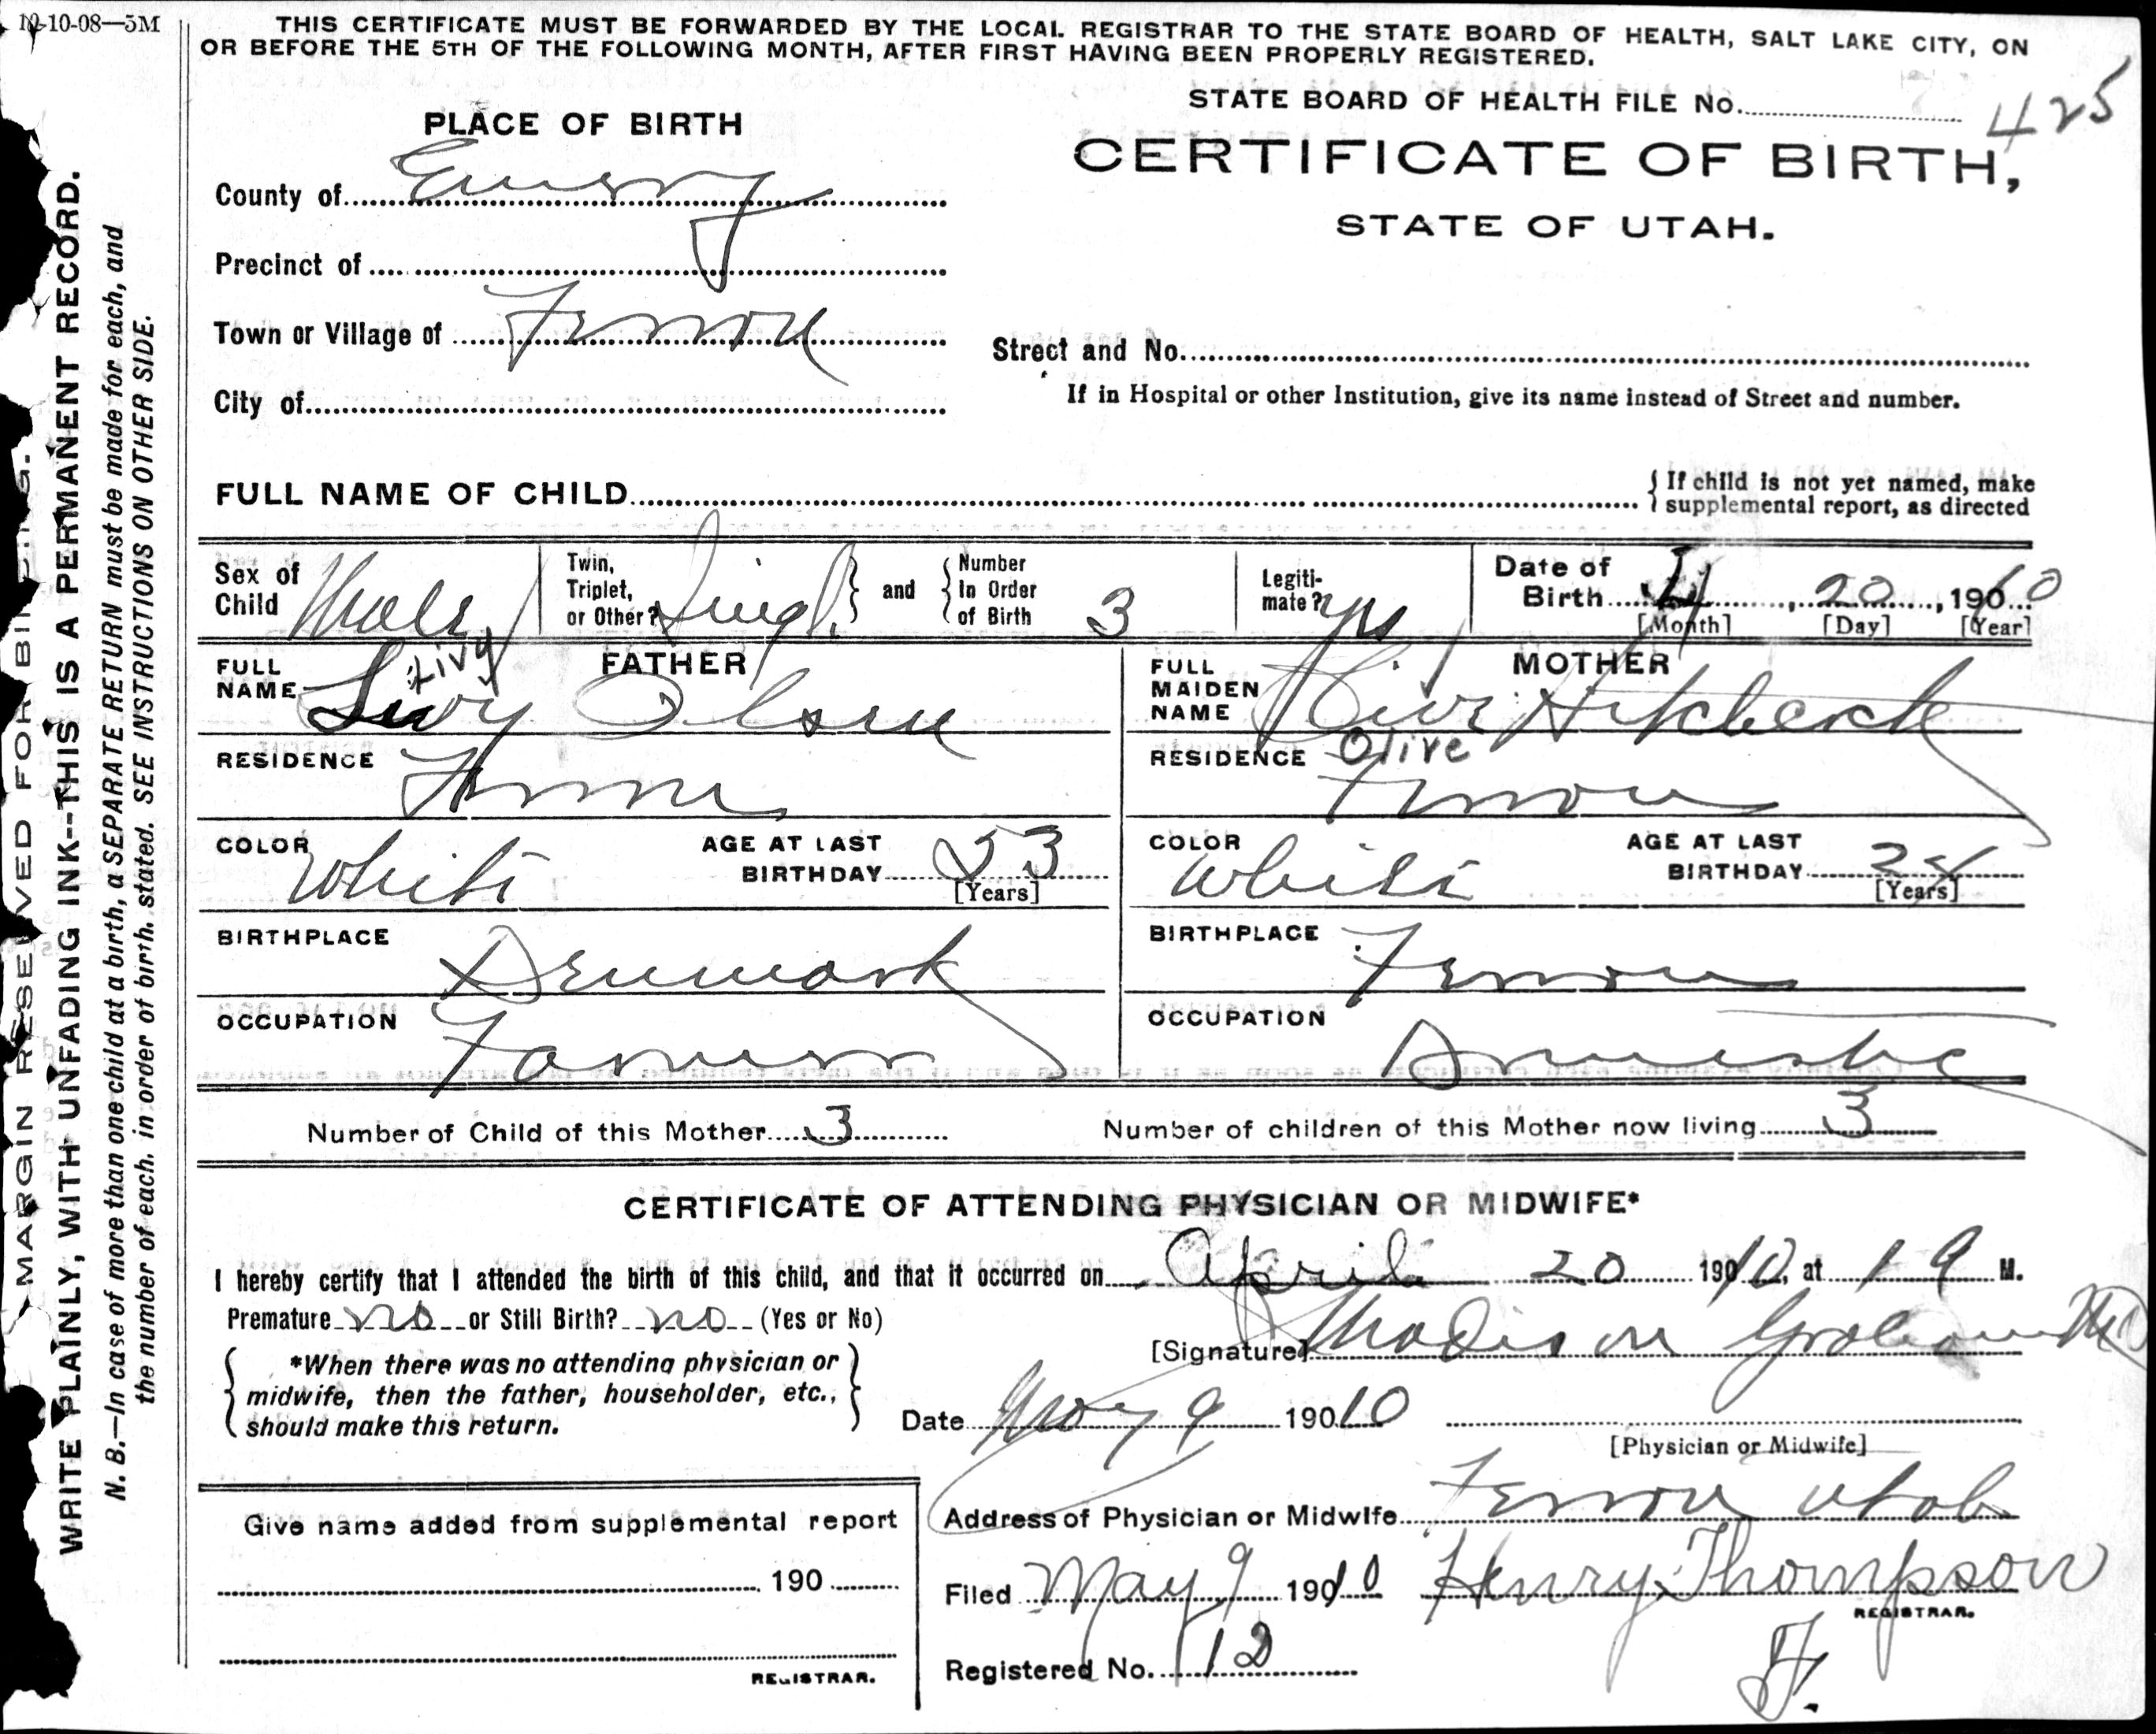 10-10-08—5M
THIS CERTIFICATE MUST BE FORWARDED BY THE LOCAL REGISTRAR TO THE STATE BOARD OF HEALTH, SALT LAKE CITY, ON
OR BEFORE THE 5TH OF THE FOLLOWING MONTH, AFTER FIRST HAVING BEEN PROPERLY REGISTERED.
STATE BOARD OF HEALTH FILE No. 425
PLACE OF BIRTH
CERTIFICATE OF BIRTH,
STATE OF UTAH.
County of Emery
Precinct of
Town or Village of Ferron
Street and No.
City of
If in Hospital or other Institution, give its name instead of Street and number.
FULL NAME OF CHILD
If child is not yet named, make
supplemental report, as directed
Sex of Child Male
Twin, Triplet, or Other? Singl. and Number In Order of Birth 3
Legitimate? yes
Date of Birth 4, 20, 1910
[Month] [Day] [Year]
FATHER
FULL NAME Livy Olsen
Livy
RESIDENCE Ferron
COLOR White
AGE AT LAST BIRTHDAY 53
[Years]
BIRTHPLACE Denmark
OCCUPATION Farmer
MOTHER
FULL MAIDEN NAME Olive Hitchcock
Olive
RESIDENCE Ferron
COLOR White
AGE AT LAST BIRTHDAY
[Years]
BIRTHPLACE Ferron
OCCUPATION Domestic
Number of Child of this Mother 3
Number of children of this Mother now living 3
CERTIFICATE OF ATTENDING PHYSICIAN OR MIDWIFE*
I hereby certify that I attended the birth of this child, and that it occurred on April 20 1910, at 1 9 M.
Premature no or Still Birth? no (Yes or No)
[Signature] Madison Graham MD
*When there was no attending physician or
midwife, then the father, householder, etc.,
should make this return.
Date May 9 190 10
[Physician or Midwife]
Address of Physician or Midwife Ferron Utah
Give name added from supplemental report
190
REGISTRAR.
Filed May 9 1910 Henry Thompson
REGISTRAR.
Registered No. 12
MARGIN RESERVED FOR BINDING.
WRITE PLAINLY, WITH UNFADING INK--THIS IS A PERMANENT RECORD.
N. B.—In case of more than one child at a birth, a SEPARATE RETURN must be made for each, and
the number of each, in order of birth, stated. SEE INSTRUCTIONS ON OTHER SIDE.